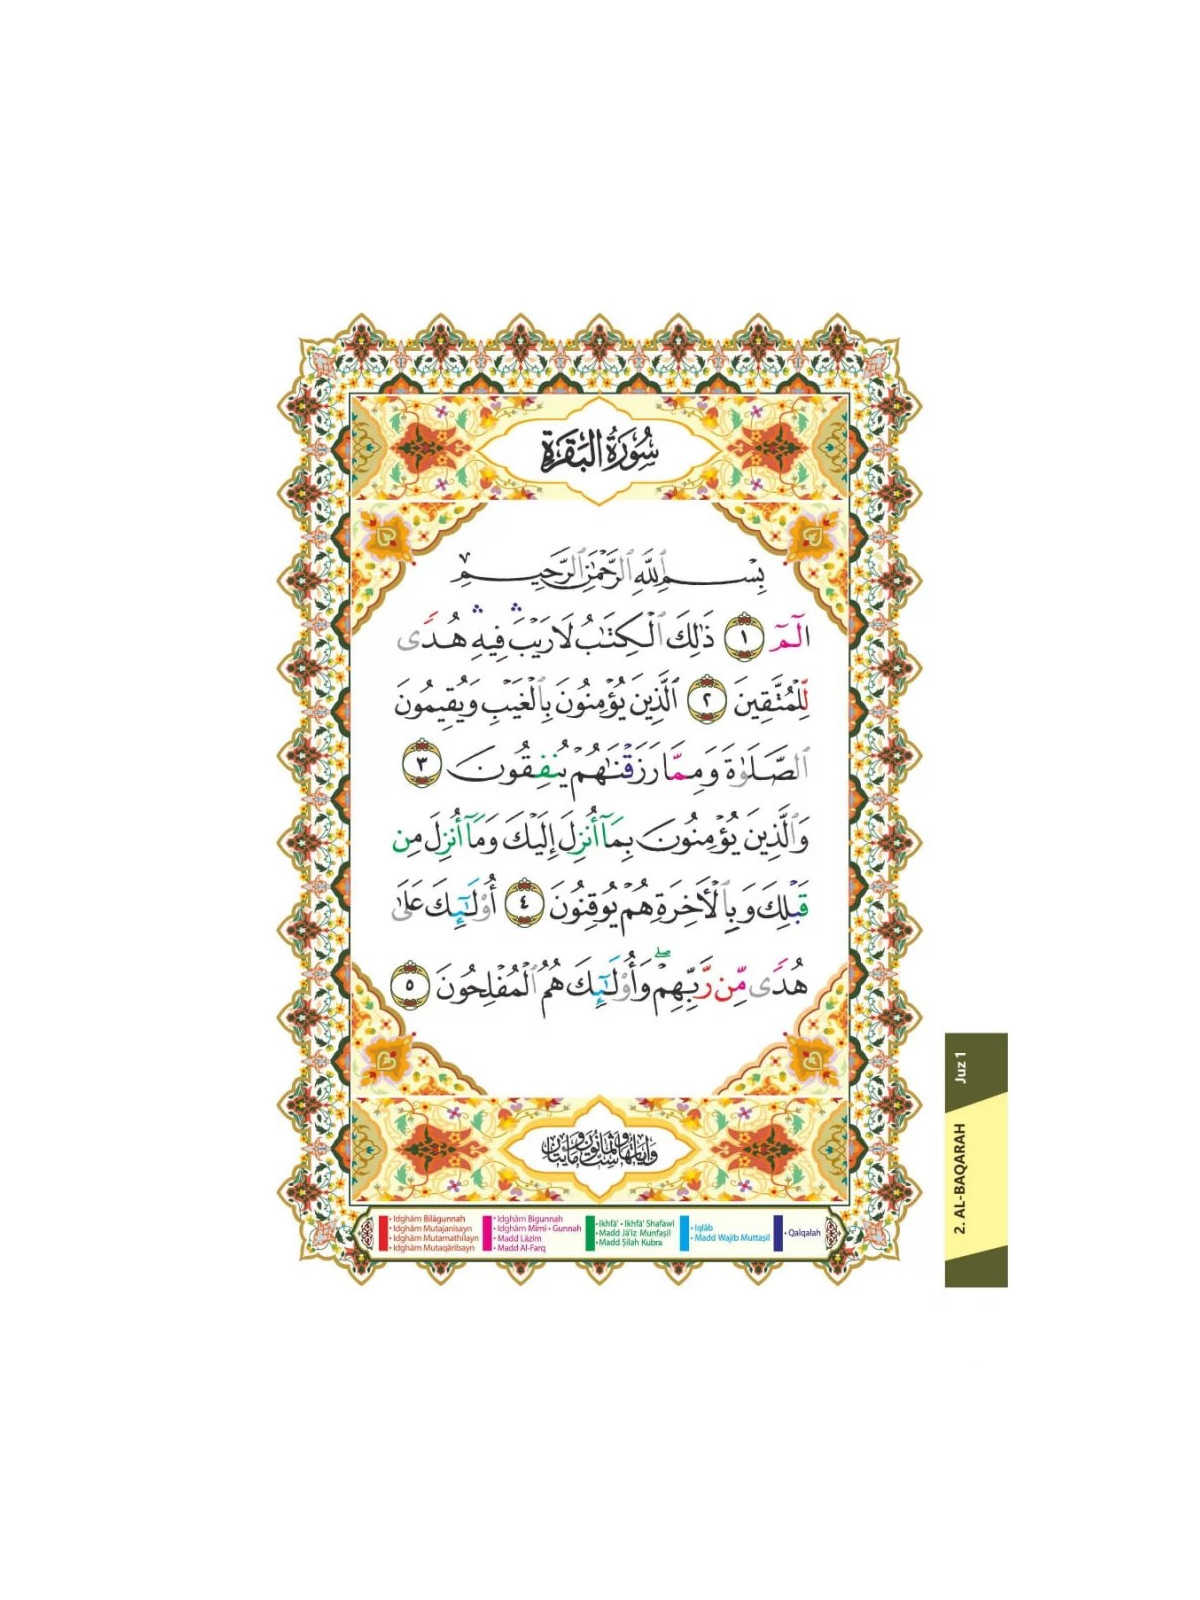 سُورَةُ الْبَقَرَةِ
بِسْمِ ٱللَّهِ ٱلرَّحْمَٰنِ ٱلرَّحِيمِ
الٓمٓ ١ ذَٰلِكَ ٱلْكِتَٰبُ لَا رَيْبَ ۛ فِيهِ ۛ هُدًى
لِّلْمُتَّقِينَ ٢ ٱلَّذِينَ يُؤْمِنُونَ بِٱلْغَيْبِ وَيُقِيمُونَ
ٱلصَّلَوٰةَ وَمِمَّا رَزَقْنَٰهُمْ يُنفِقُونَ ٣
وَٱلَّذِينَ يُؤْمِنُونَ بِمَآ أُنزِلَ إِلَيْكَ وَمَآ أُنزِلَ مِن
قَبْلِكَ وَبِٱلْأَخِرَةِ هُمْ يُوقِنُونَ ٤ أُو۟لَٰٓئِكَ عَلَىٰ
هُدًى مِّن رَّبِّهِمْ ۖ وَأُو۟لَٰٓئِكَ هُمُ ٱلْمُفْلِحُونَ ٥
وآياتها ست وثمانون ومايتان
• Idghām Bilāgunnah
• Idghām Mutajanisayn
• Idghām Mutamathilayn
• Idghām Mutaqāribayn
• Idghām Bigunnah
• Idghām Mimi • Gunnah
• Madd Lāzim
• Madd Al-Farq
• Ikhfā' • Ikhfā' Shafawī
• Madd Jā'iz Munfaṣil
• Madd Ṣilah Kubra
• Iqlāb
• Madd Wajib Muttaṣil
• Qalqalah
2. AL-BAQARAH
Juz 1